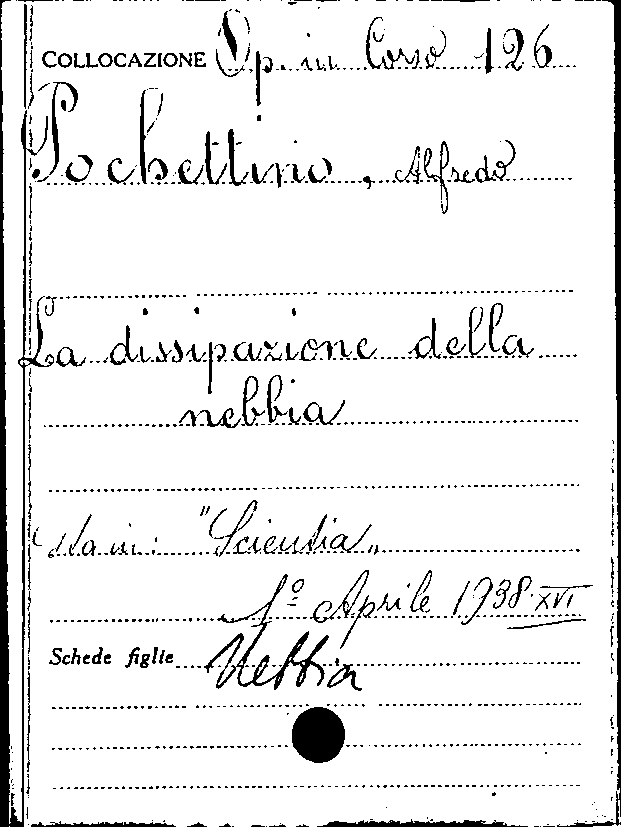 COLLOCAZIONE Op. in Corso 126
Pochettino, Alfredo
La dissipazione della
nebbia
Sta in: "Scientia„
1º Aprile 1938·XVI
Schede figlie Nebbia